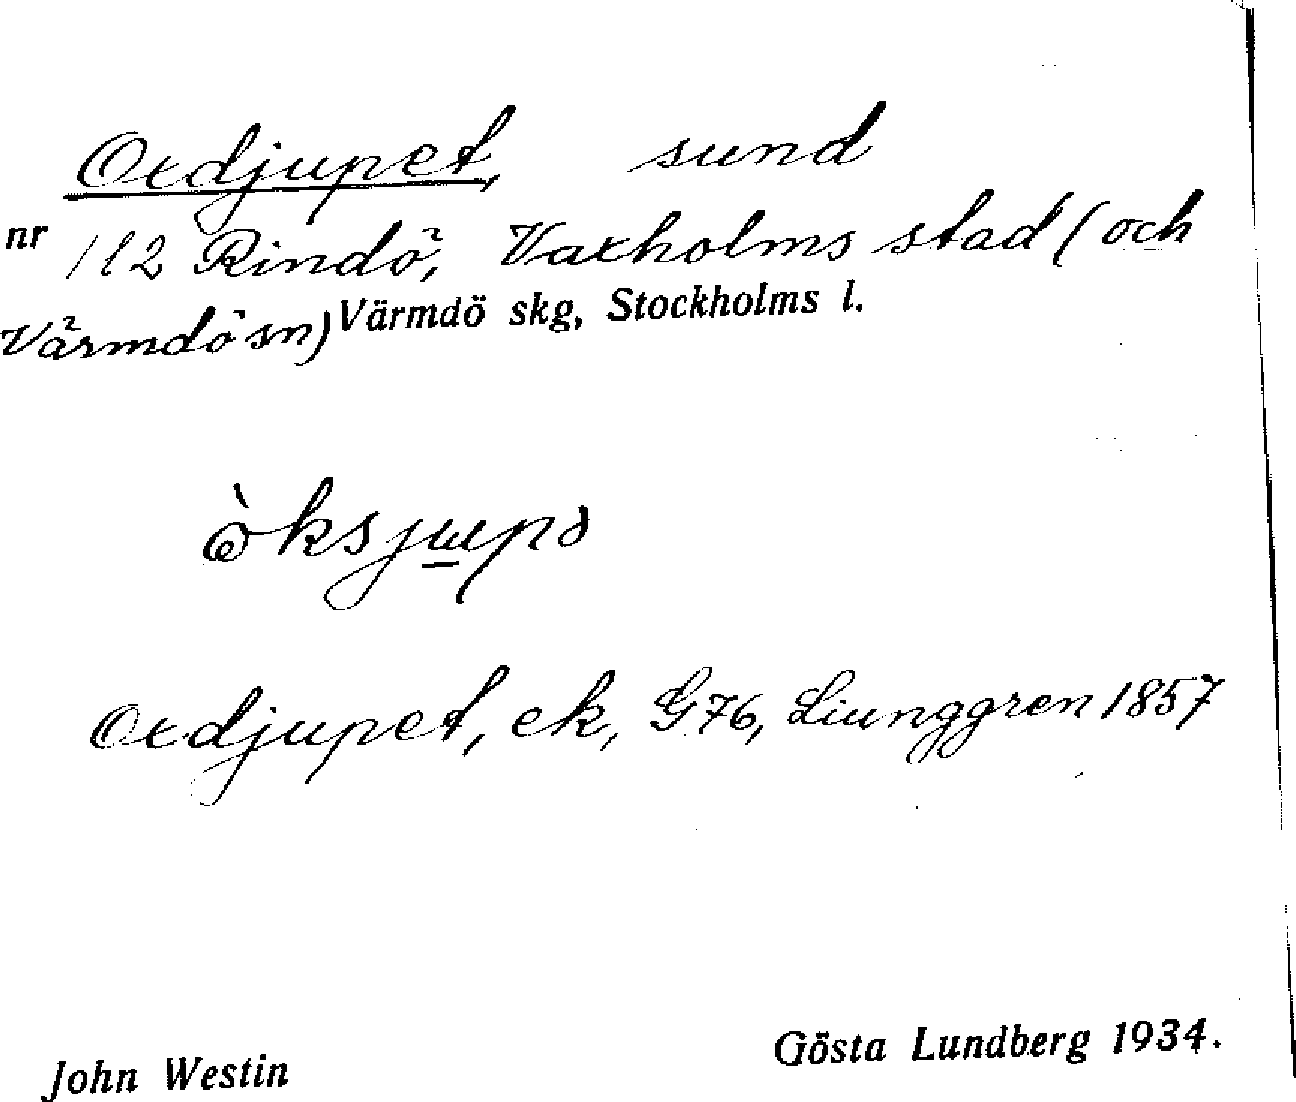 Oxdjupet, sund
nr 112 Rindö, Vaxholms stad (och
Värmdö sn) Värmdö skg, Stockholms l.
òksjupə
Oxdjupet, ek, G 76, Liunggren 1857
John Westin Gösta Lundberg 1934.